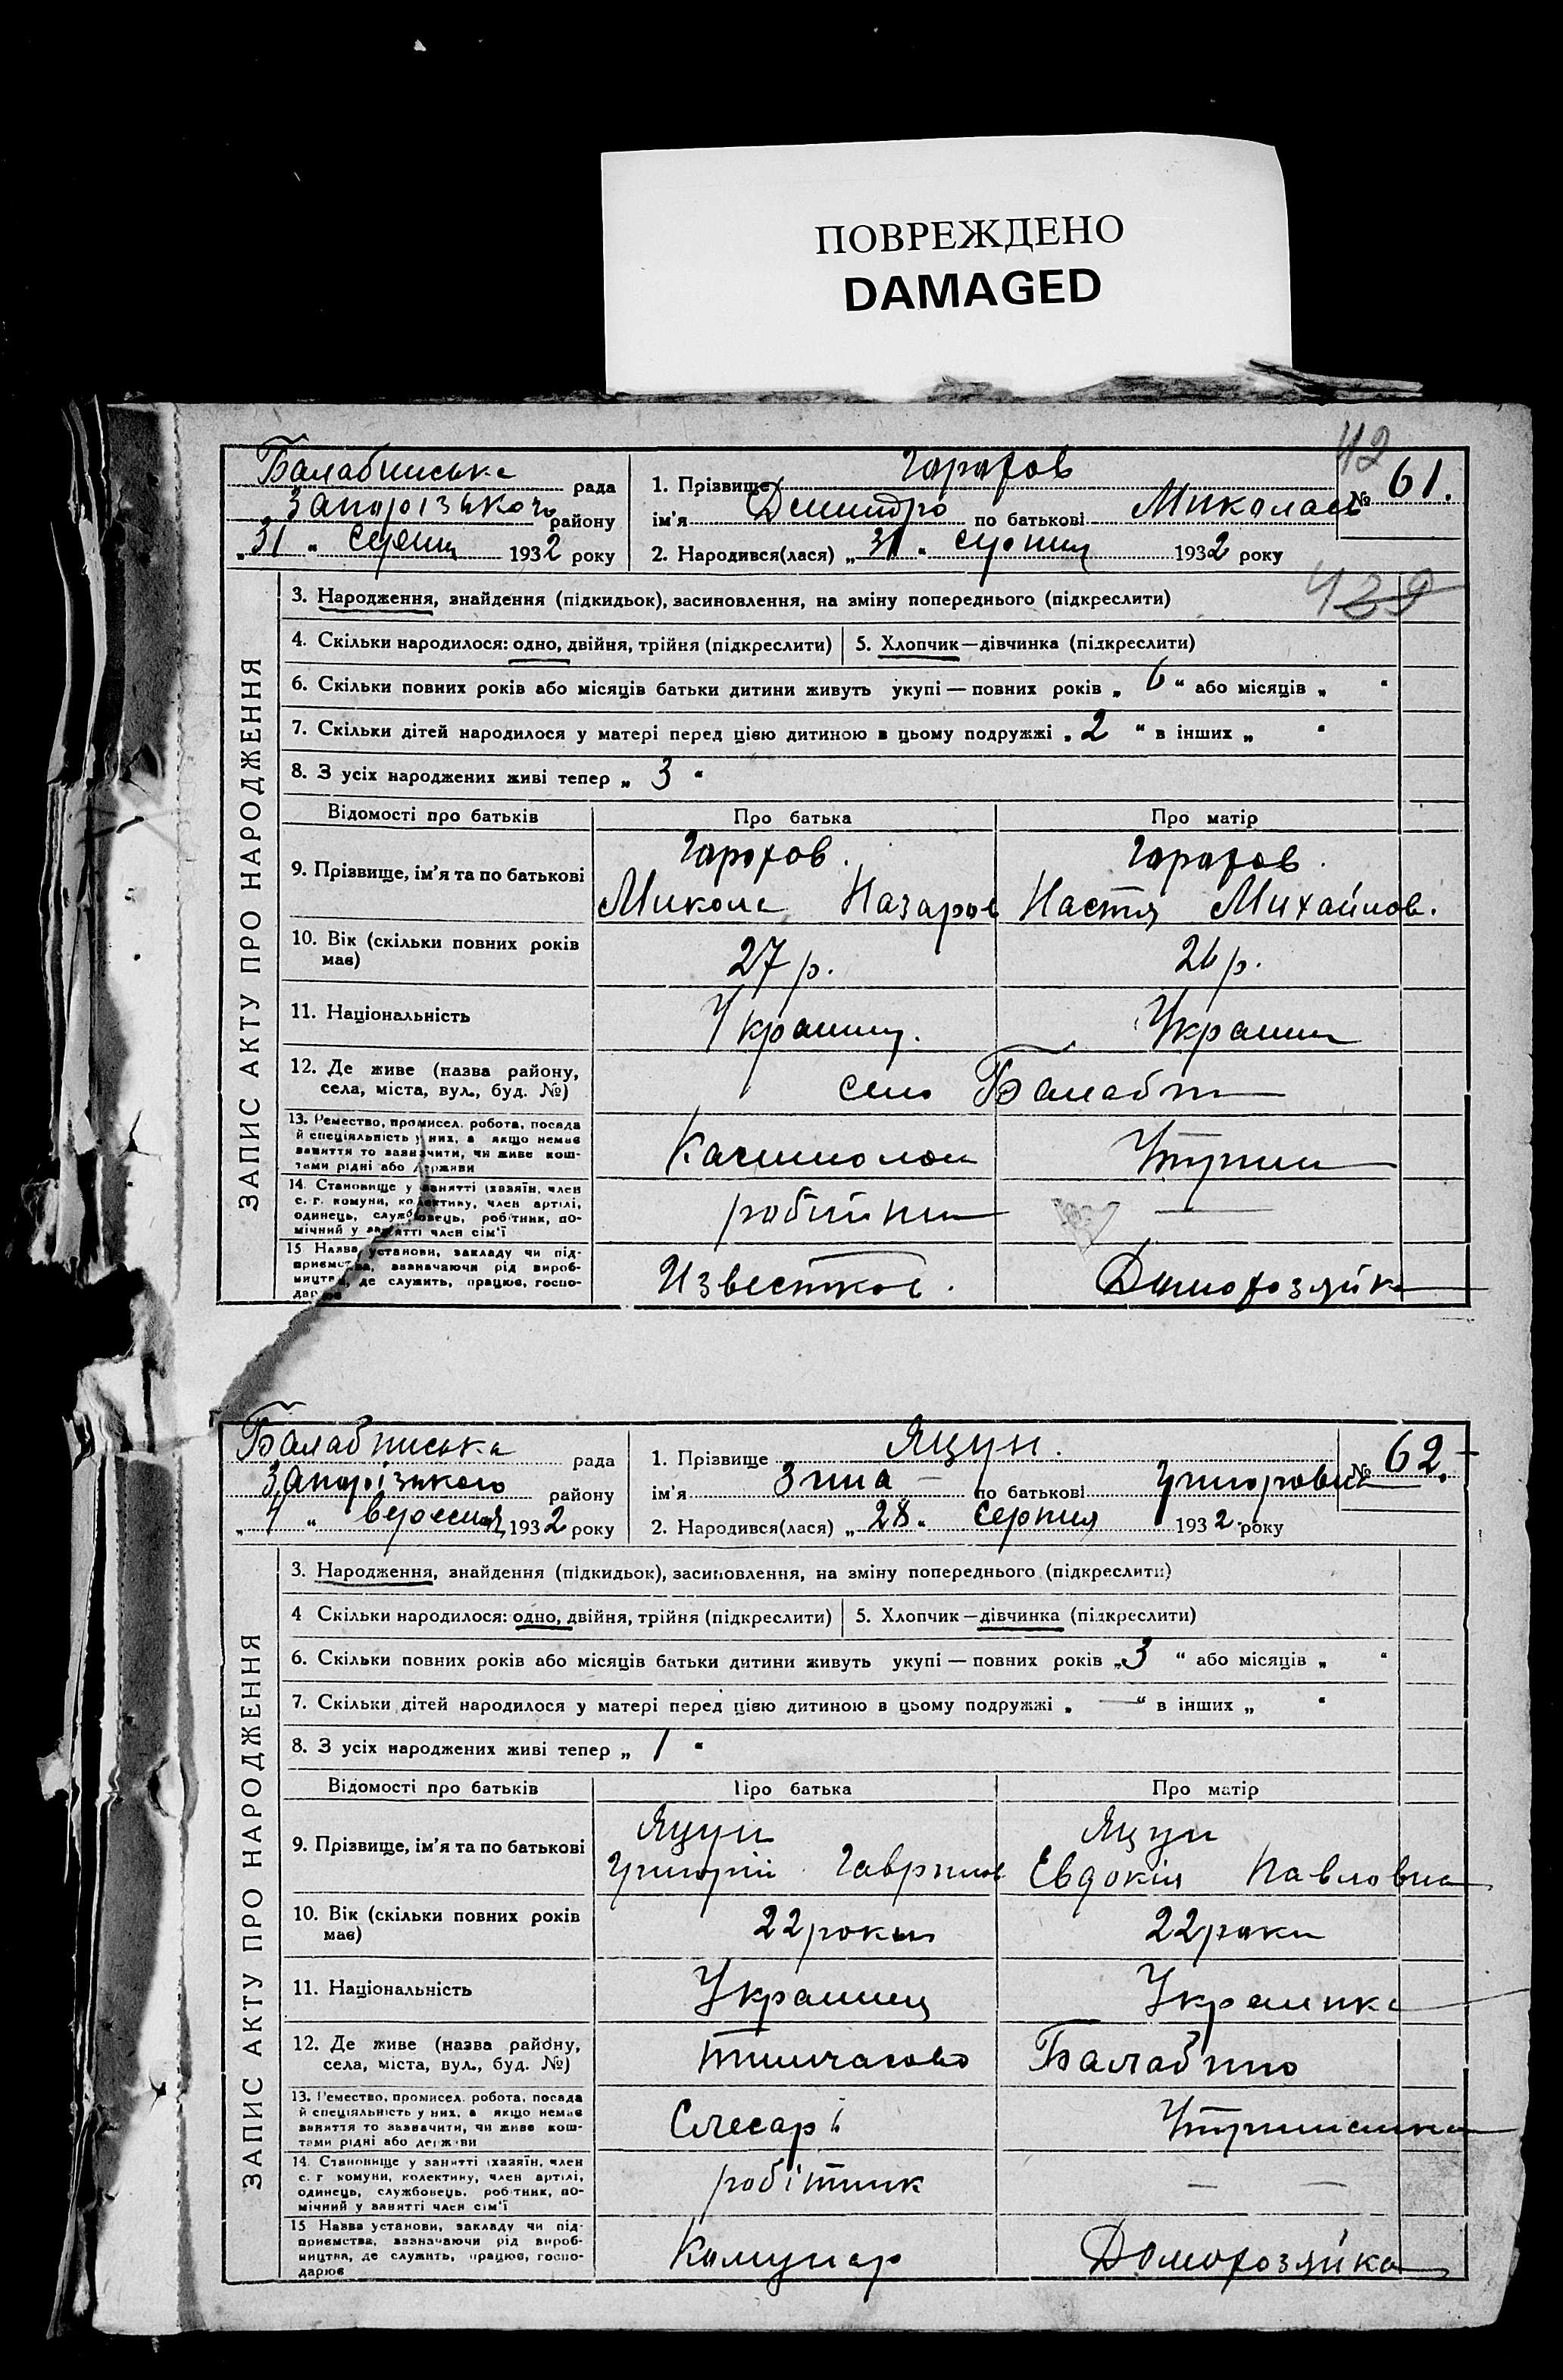 ПОВРЕЖДЕНО
DAMAGED
42
Балабинська рада
Запорізького району
„31“ серпня 1932 року
1. Прізвище Горохов
ім'я Дмитро по батькові Миколаєв
2. Народився(лася) „31“ серпня 1932 року
№ 61.
439
ЗАПИС АКТУ ПРО НАРОДЖЕННЯ
3. Народження, знайдення (підкидьок), засиновлення, на зміну попереднього (підкреслити)
4. Скільки народилося: одно, двійня, трійня (підкреслити) 5. Хлопчик—дівчинка (підкреслити)
6. Скільки повних років або місяців батьки дитини живуть укупі — повних років „ 6 “ або місяців „ “
7. Скільки дітей народилося у матері перед цією дитиною в цьому подружжі „ 2 “ в інших „ “
8. З усіх народжених живі тепер „ 3 “
Відомості про батьків Про батька Про матір
9. Прізвище, ім'я та по батькові
Горохов. Горохов.
Микола Назаров Настя Михайлов.
10. Вік (скільки повних років має) 27 р. 26 р.
11. Національність Украинц. Украин
12. Де живе (назва району, села, міста, вул., буд. №) село Балабин
13. Ремество, промисел, робота, посада
й спеціяльність у них, а якщо немає
заняття то зазначити, чи живе кош-
тами рідні або держави
Утрим
14. Становище у занятті (хазяїн, член
с. г. комуни, колективу, член артілі,
одинець, службовець, робітник, по-
мічний у занятті член сім'ї
робітник —
15 Назва установи, закладу чи під-
приємства, зазначаючи рід вироб-
ництва, де служить, працює, госпо-
дарює
Известков. Домохозяйка
Балабинська рада
Запорізького району
„ “ вересня 1932 року
1. Прізвище Яцун.
ім'я Зина — по батькові Григоровна
2. Народився(лася) „28“ серпня 1932 року
№ 62.
ЗАПИС АКТУ ПРО НАРОДЖЕННЯ
3. Народження, знайдення (підкидьок), засиновлення, на зміну попереднього (підкреслити)
4 Скільки народилося: одно, двійня, трійня (підкреслити) 5. Хлопчик—дівчинка (підкреслити)
6. Скільки повних років або місяців батьки дитини живуть укупі — повних років „ 3 “ або місяців „ “
7. Скільки дітей народилося у матері перед цією дитиною в цьому подружжі „ — “ в інших „ “
8. З усіх народжених живі тепер „ 1 “
Відомості про батьків Про батька Про матір
9. Прізвище, ім'я та по батькові
Яцун Яцун
Григорій Гаврилов Евдокія Павловна
10. Вік (скільки повних років має) 22 роки 22 роки
11. Національність Украинец Украинка
12. Де живе (назва району, села, міста, вул., буд. №) тимчасово Балабино
13. Ремество, промисел, робота, посада
й спеціяльність у них, а якщо немає
заняття то зазначити, чи живе кош-
тами рідні або держави
Слесарь Утриманка
14. Становище у занятті (хазяїн, член
с. г комуни, колективу, член артілі,
одинець, службовець, робітник, по-
мічний у занятті член сім'ї
робітник — —
15 Назва установи, закладу чи під-
приємства, зазначаючи рід вироб-
ництва, де служить, працює, госпо-
дарює
Комунар Домохозяйка